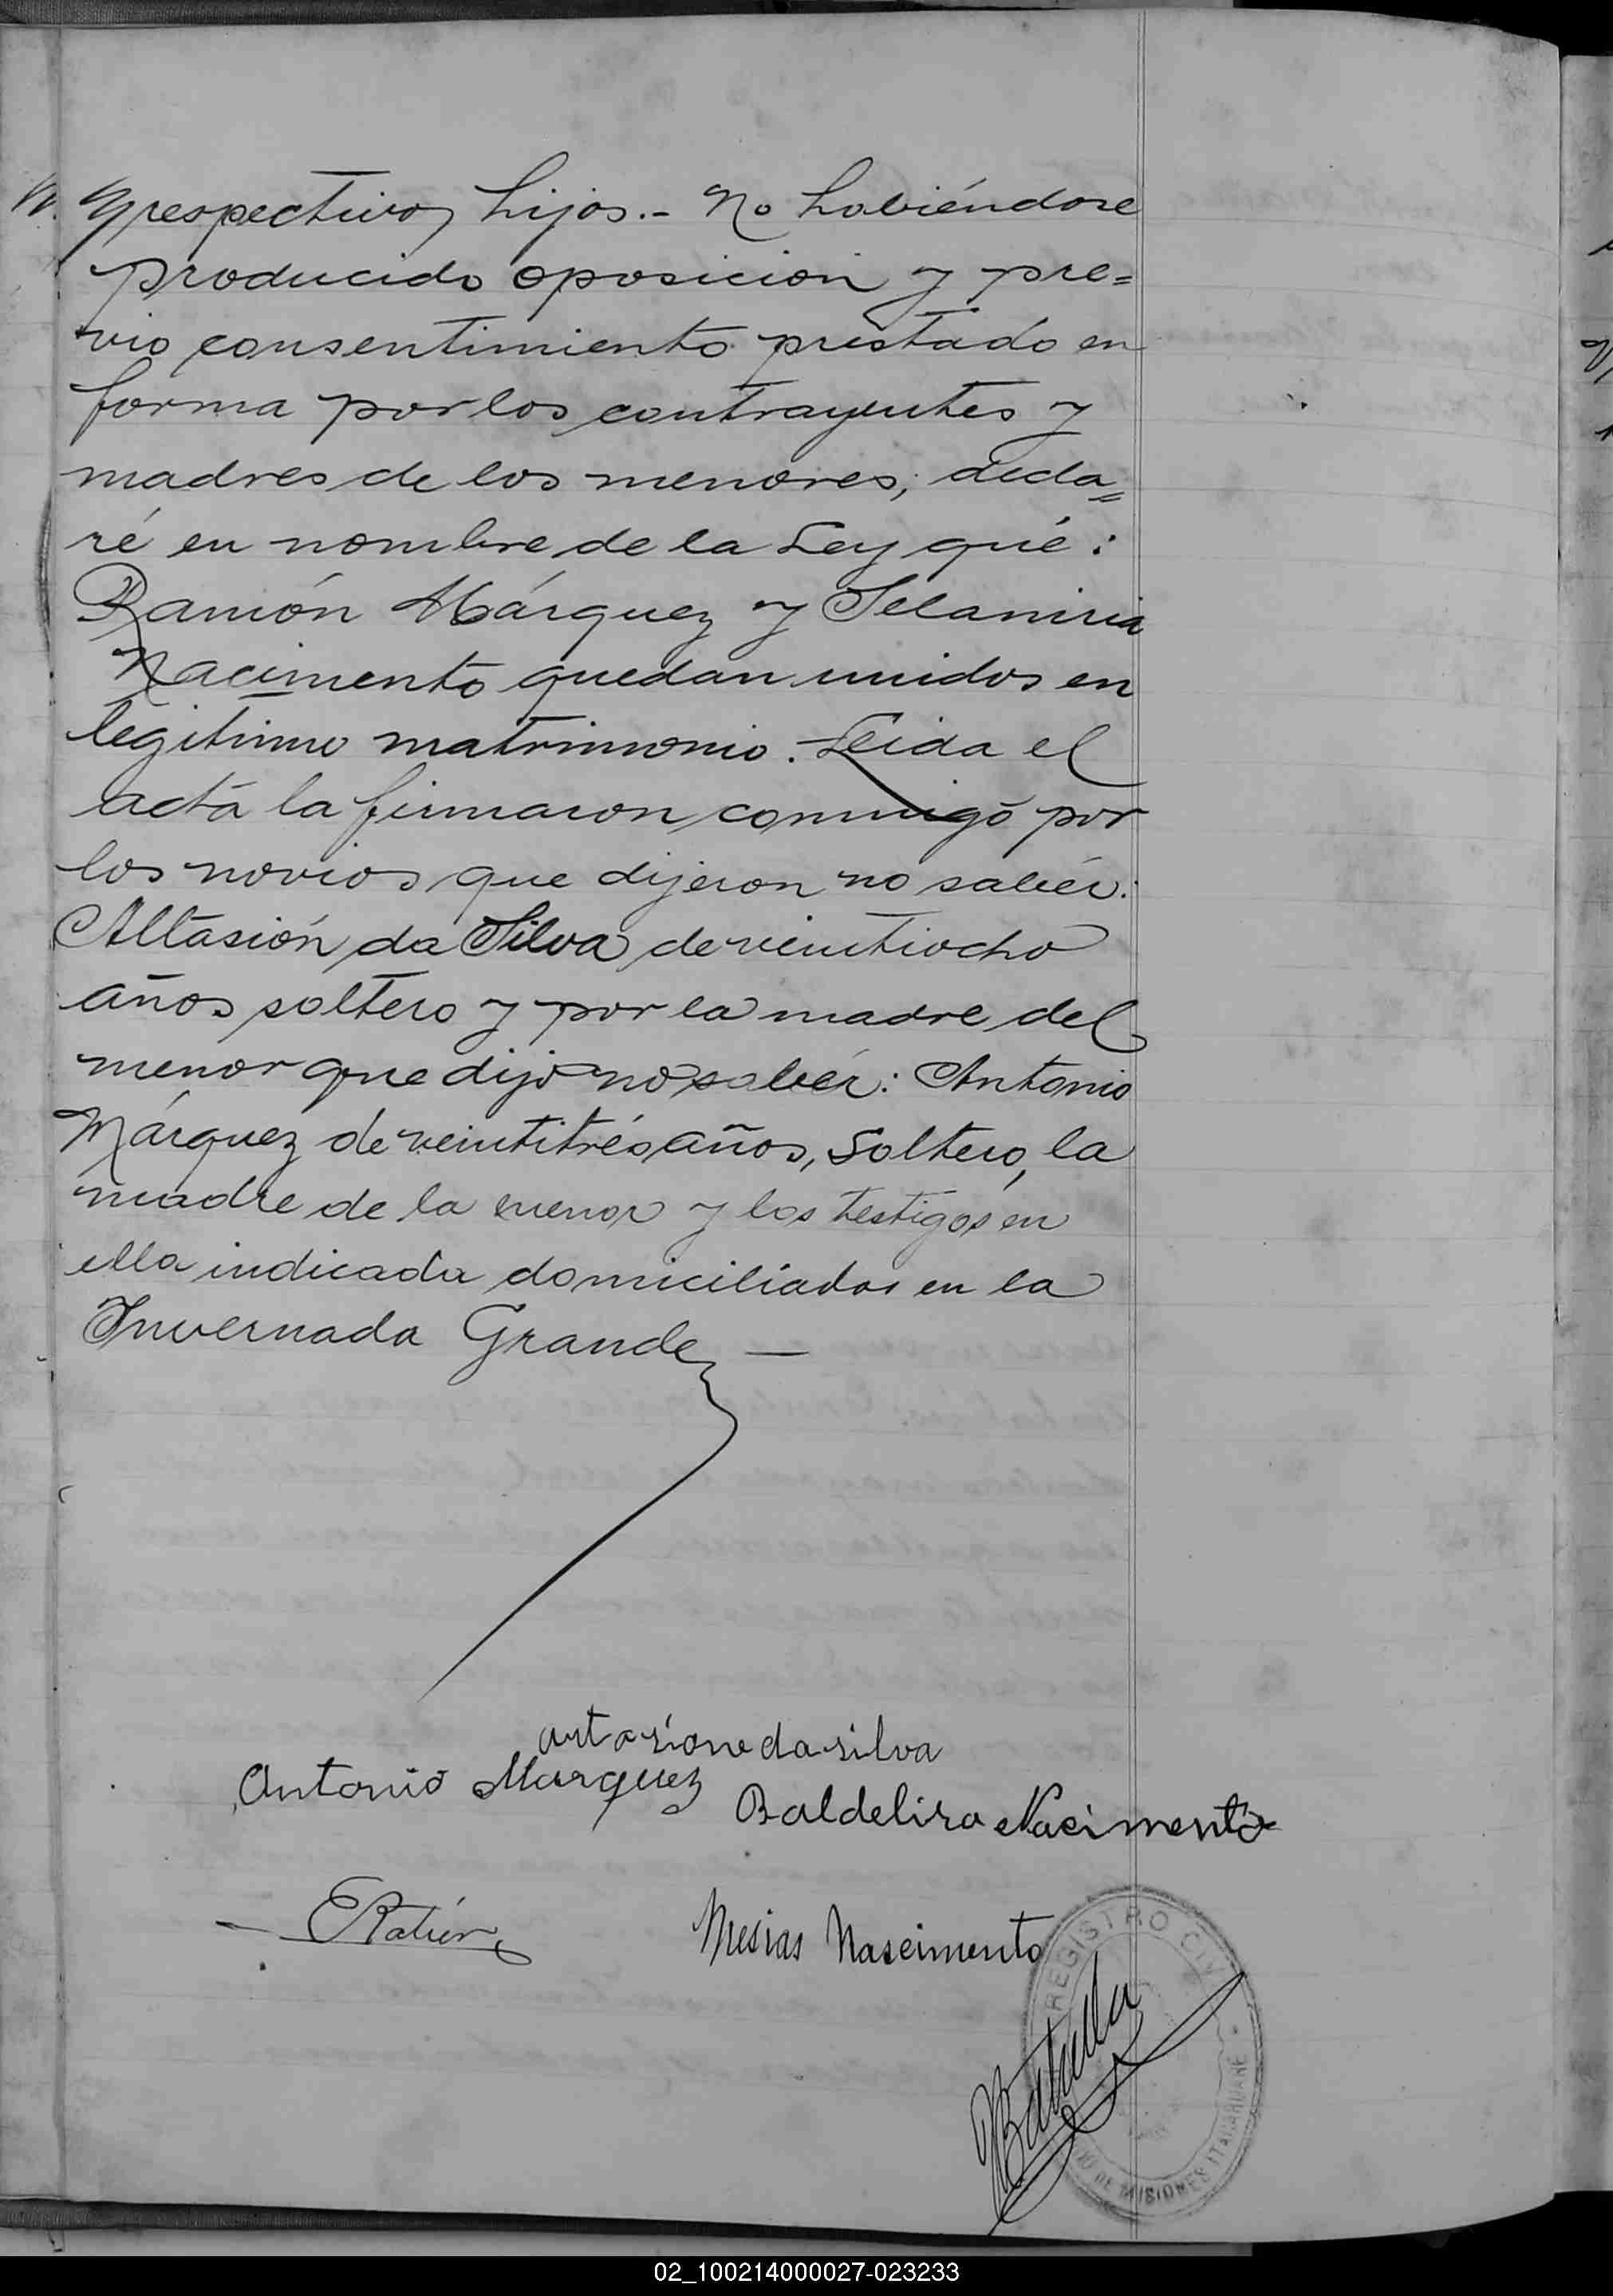 respectivos hijos.- No habiéndose
producido oposición y pre=
vio consentimiento prestado en
forma por los contrayentes y
madres de los menores, decla=
ré en nombre de la Ley qué:
Ramón Márquez y Selaniria
Nacimento quedan unidos en
legitimo matrimonio. Leida el
acta la firmaron conmigo por
los novios que dijeron no sabér:
Altasión da Silva de veintiocho
años soltero y por la madre del
menor que dijo no sabér: Antonio
Márquez de veintitrés años, soltero, la
madre de la menor y los testigos en
ella indicada domiciliados en la
Invernada Grande —
artasione da silva
Antonio Marquez
Baldelira Nacimento
Mesias Nascimento
REGISTRO CIVIL
DE MISIONES ITACARUARE
02_100214000027-023233